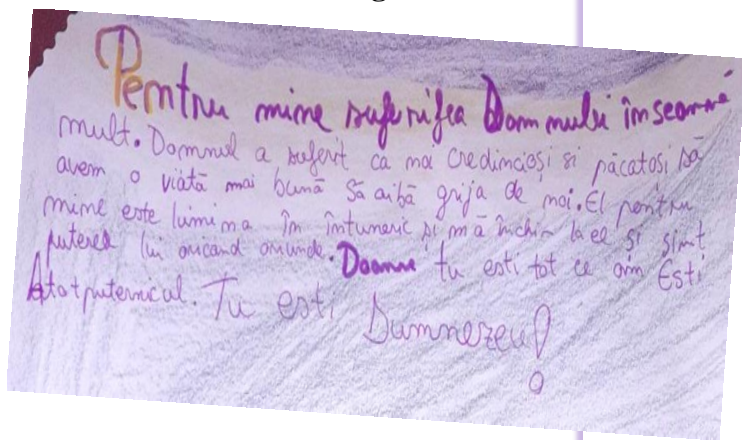 Pentru mine suferifea Domnului înseamnă
mult. Domnul a suferit ca noi credincioși si păcatosi să
avem o viată mai bună Să aibă grija de noi. El pentru
mine este lumina în întuneric și mă închin la el și simt
puterea lui oricand oriunde. Doamne tu esti tot ce am Esti
Atotputernicul. Tu esti Dumnezeu!